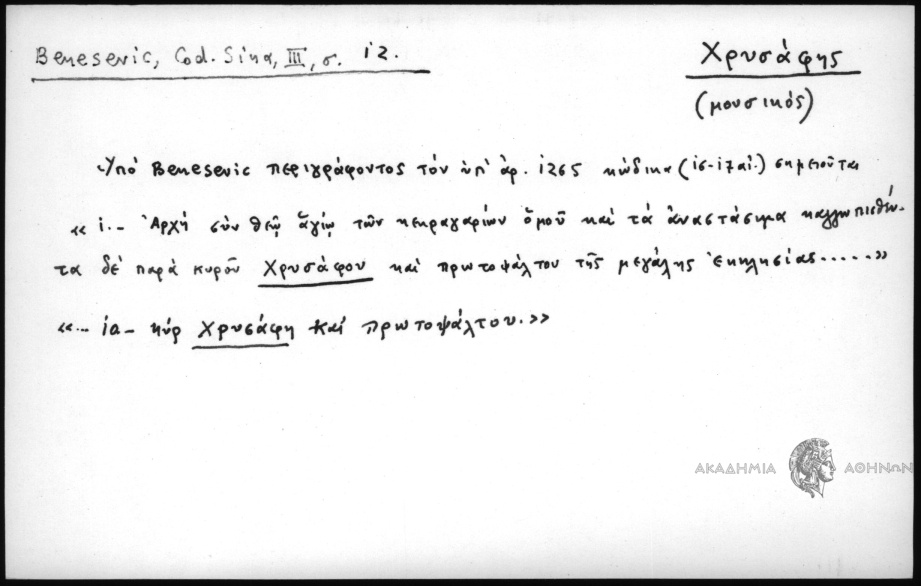 Benesevic, Cod. Sina, III, σ. 12.
Χρυσάφης
(μουσικός)
Ὑπό Benesevic περιγράφοντος τόν ὑπ' ἀρ. 1265 κώδικα (ις-ιζ αἰ.) σημειοῦται
«1.- Ἀρχή σύν θεῷ ἁγίῳ τῶν κεκραγαρίων ὁμοῦ καί τά ἀναστάσιμα καλλωπισθέν-
τα δέ παρά κυροῦ Χρυσάφου καί πρωτοψάλτου τῆς μεγάλης ἐκκλησίας.....»
«... 1α- κύρ Χρυσάφη καί πρωτοψάλτου.»
ΑΚΑΔΗΜΙΑ ΑΘΗΝΩΝ